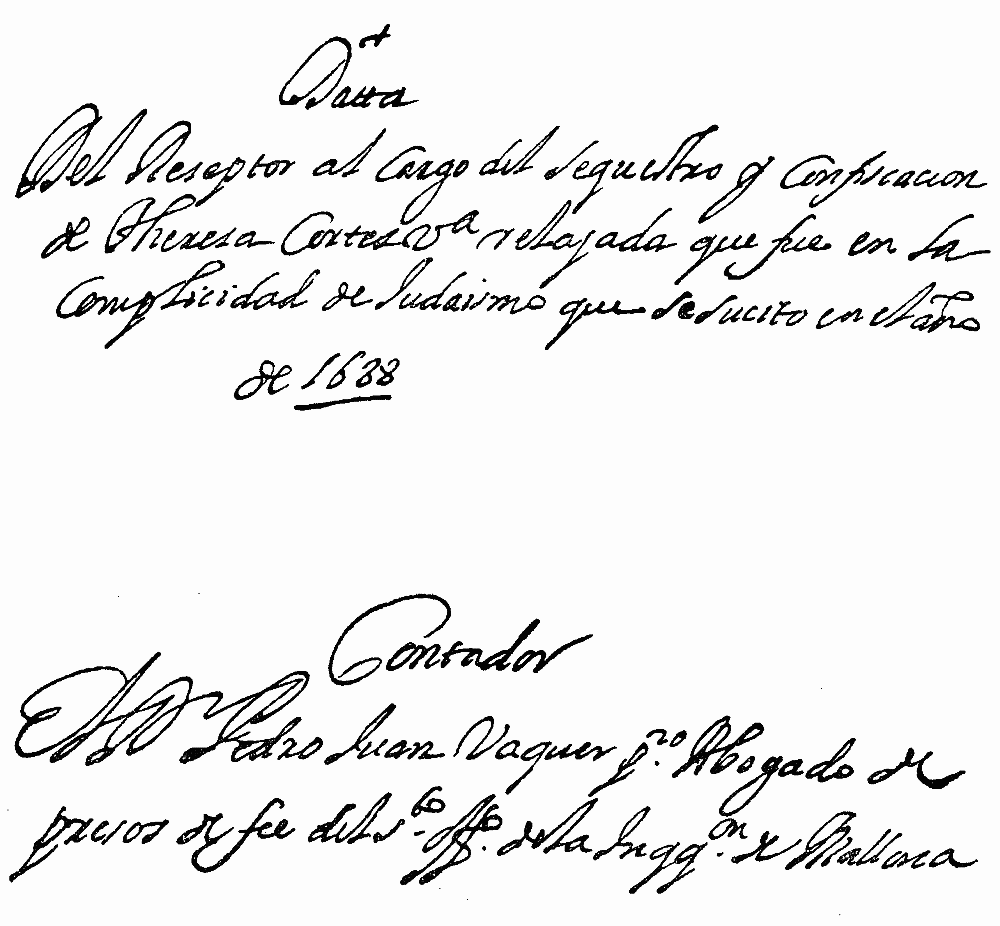 +
Datta
Del Reseptor al Cargo del sequestro y Confiscacion
de Theresa Cortes Vª relajada que fue en la
Complicidad de Iudaismo que se sucito en el año
de 1688
Contador
El Dr Pedro Juan Vaquer pro. Abogado de
presos de fee del Sto. Offo. de la Inqqon. de Mallorca